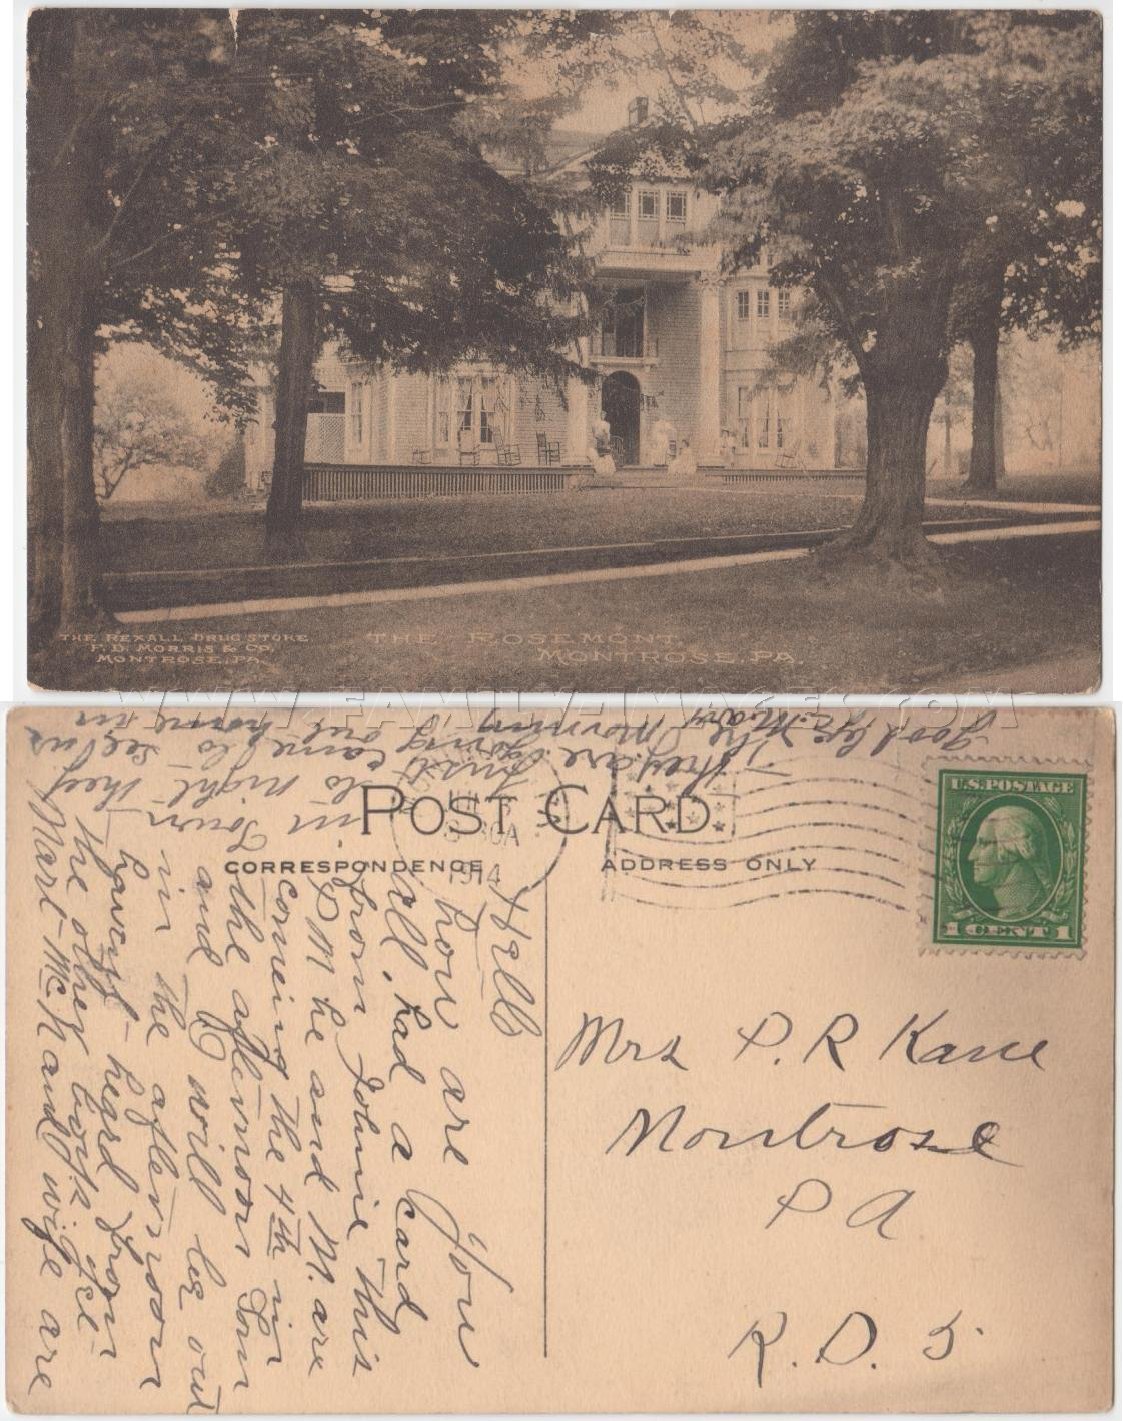 THE REXALL DRUG STORE
F. D. MORRIS & CO.
MONTROSE, PA.
THE ROSEMONT.
MONTROSE, PA.
WWW.FAMILY-IMAGES.COM
POST CARD
CORRESPONDENCE
ADDRESS ONLY
U.S. POSTAGE
1 CENT 1
1914
Hello
how are You
all, had a card
from Johnie this
P M he and M. are
comeing the 4th in
the afternoon Tom
and E will be out
in the afternoon
havent heard from
the other boys yet
Mart McN and wife are
in Town
to night they
just came to see us
they are going out home in
The Morning
Good by Mary
Mrs P. R Kane
Montrose
PA
R. D. 5